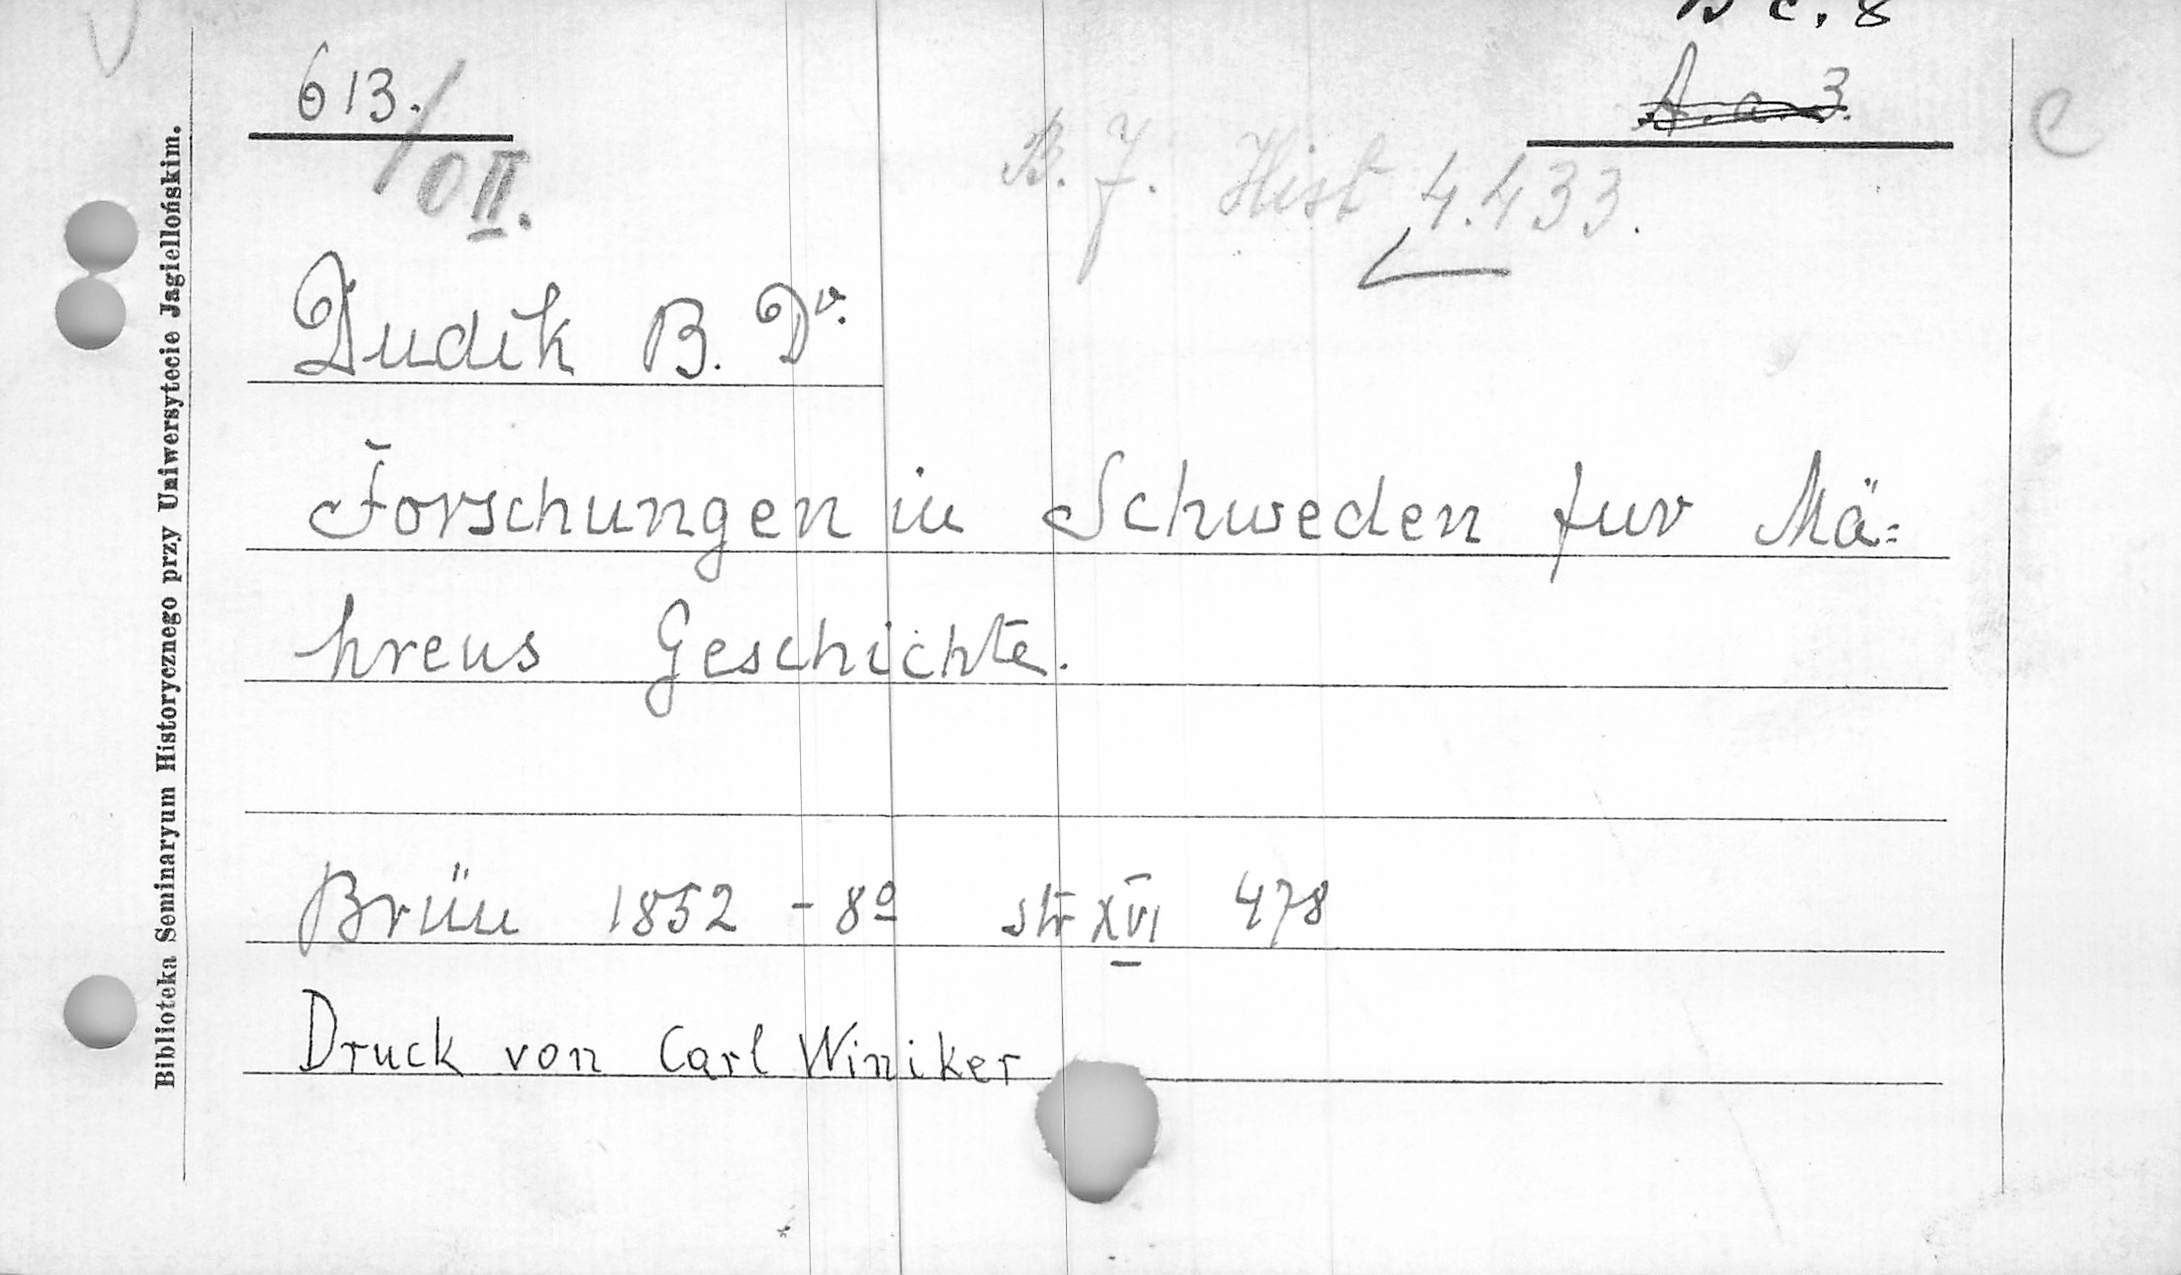 B c. 8
613./
O II.
A. a. 3.
e
B. J. Hist 4.433.
Dudik B. Dr.
Forschungen in Schweden fur Mä=
hrens Geschichte.
Brün 1852 - 8º str XVI 478
Druck von Carl Winiker
Biblioteka Seminaryum Historycznego przy Uniwersytecie Jagiellońskim.